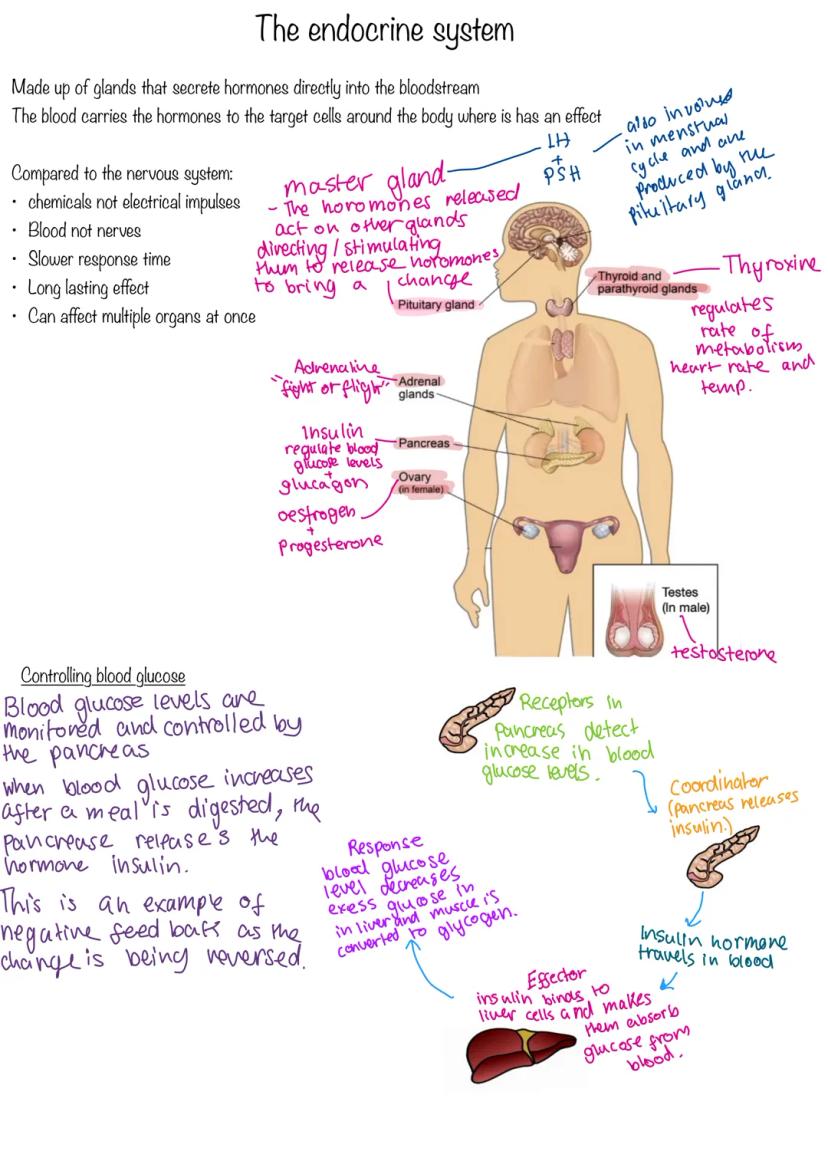 The endocrine system
Made up of glands that secrete hormones directly into the bloodstream
The blood carries the hormones to the target cells around the body where is has an effect
Compared to the nervous system:
• chemicals not electrical impulses
• Blood not nerves
• Slower response time
• Long lasting effect
• Can affect multiple organs at once
master gland
- The horomones released
act on other glands
directing / stimulating
them to release horomones
to bring a change
LH
+
PSH
also involved
in menstrual
cycle and are
produced by the
pituitary gland.
Pituitary gland
Thyroid and
parathyroid glands
Thyroxine
regulates
rate of
metabolism
heart rate and
temp.
Adrenaline
"fight or fligh"
Adrenal
glands
Insulin
regulate blood
glucose levels
+
glucagon
Pancreas
Ovary
(in female)
oestrogen
+
Progesterone
Testes
(In male)
testosterone
Controlling blood glucose
Blood glucose levels are
monitored and controlled by
the pancreas
when blood glucose increases
after a meal is digested, the
pancrease releases the
hormone insulin.
This is an example of
negative feed back as the
change is being reversed.
Receptors in
Pancreas detect
increase in blood
glucose levels.
Coordinator
(pancreas releases
insulin.)
Insulin hormone
travels in blood
Effector
insulin binds to
liver cells and makes
them absorb
glucose from
blood.
Response
blood glucose
level decreases
exess glucose in
in liver and muscle is
converted to glycogen.